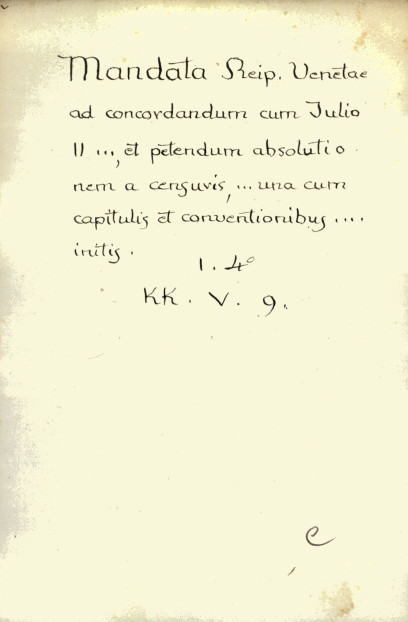 Mandata Reip. Venetae
ad concordandum cum Julio
II ..., et petendum absolutio
nem a censuris, ... una cum
capitulis et conventionibus ....
initis.
1. 4º
KK. V. 9.
e